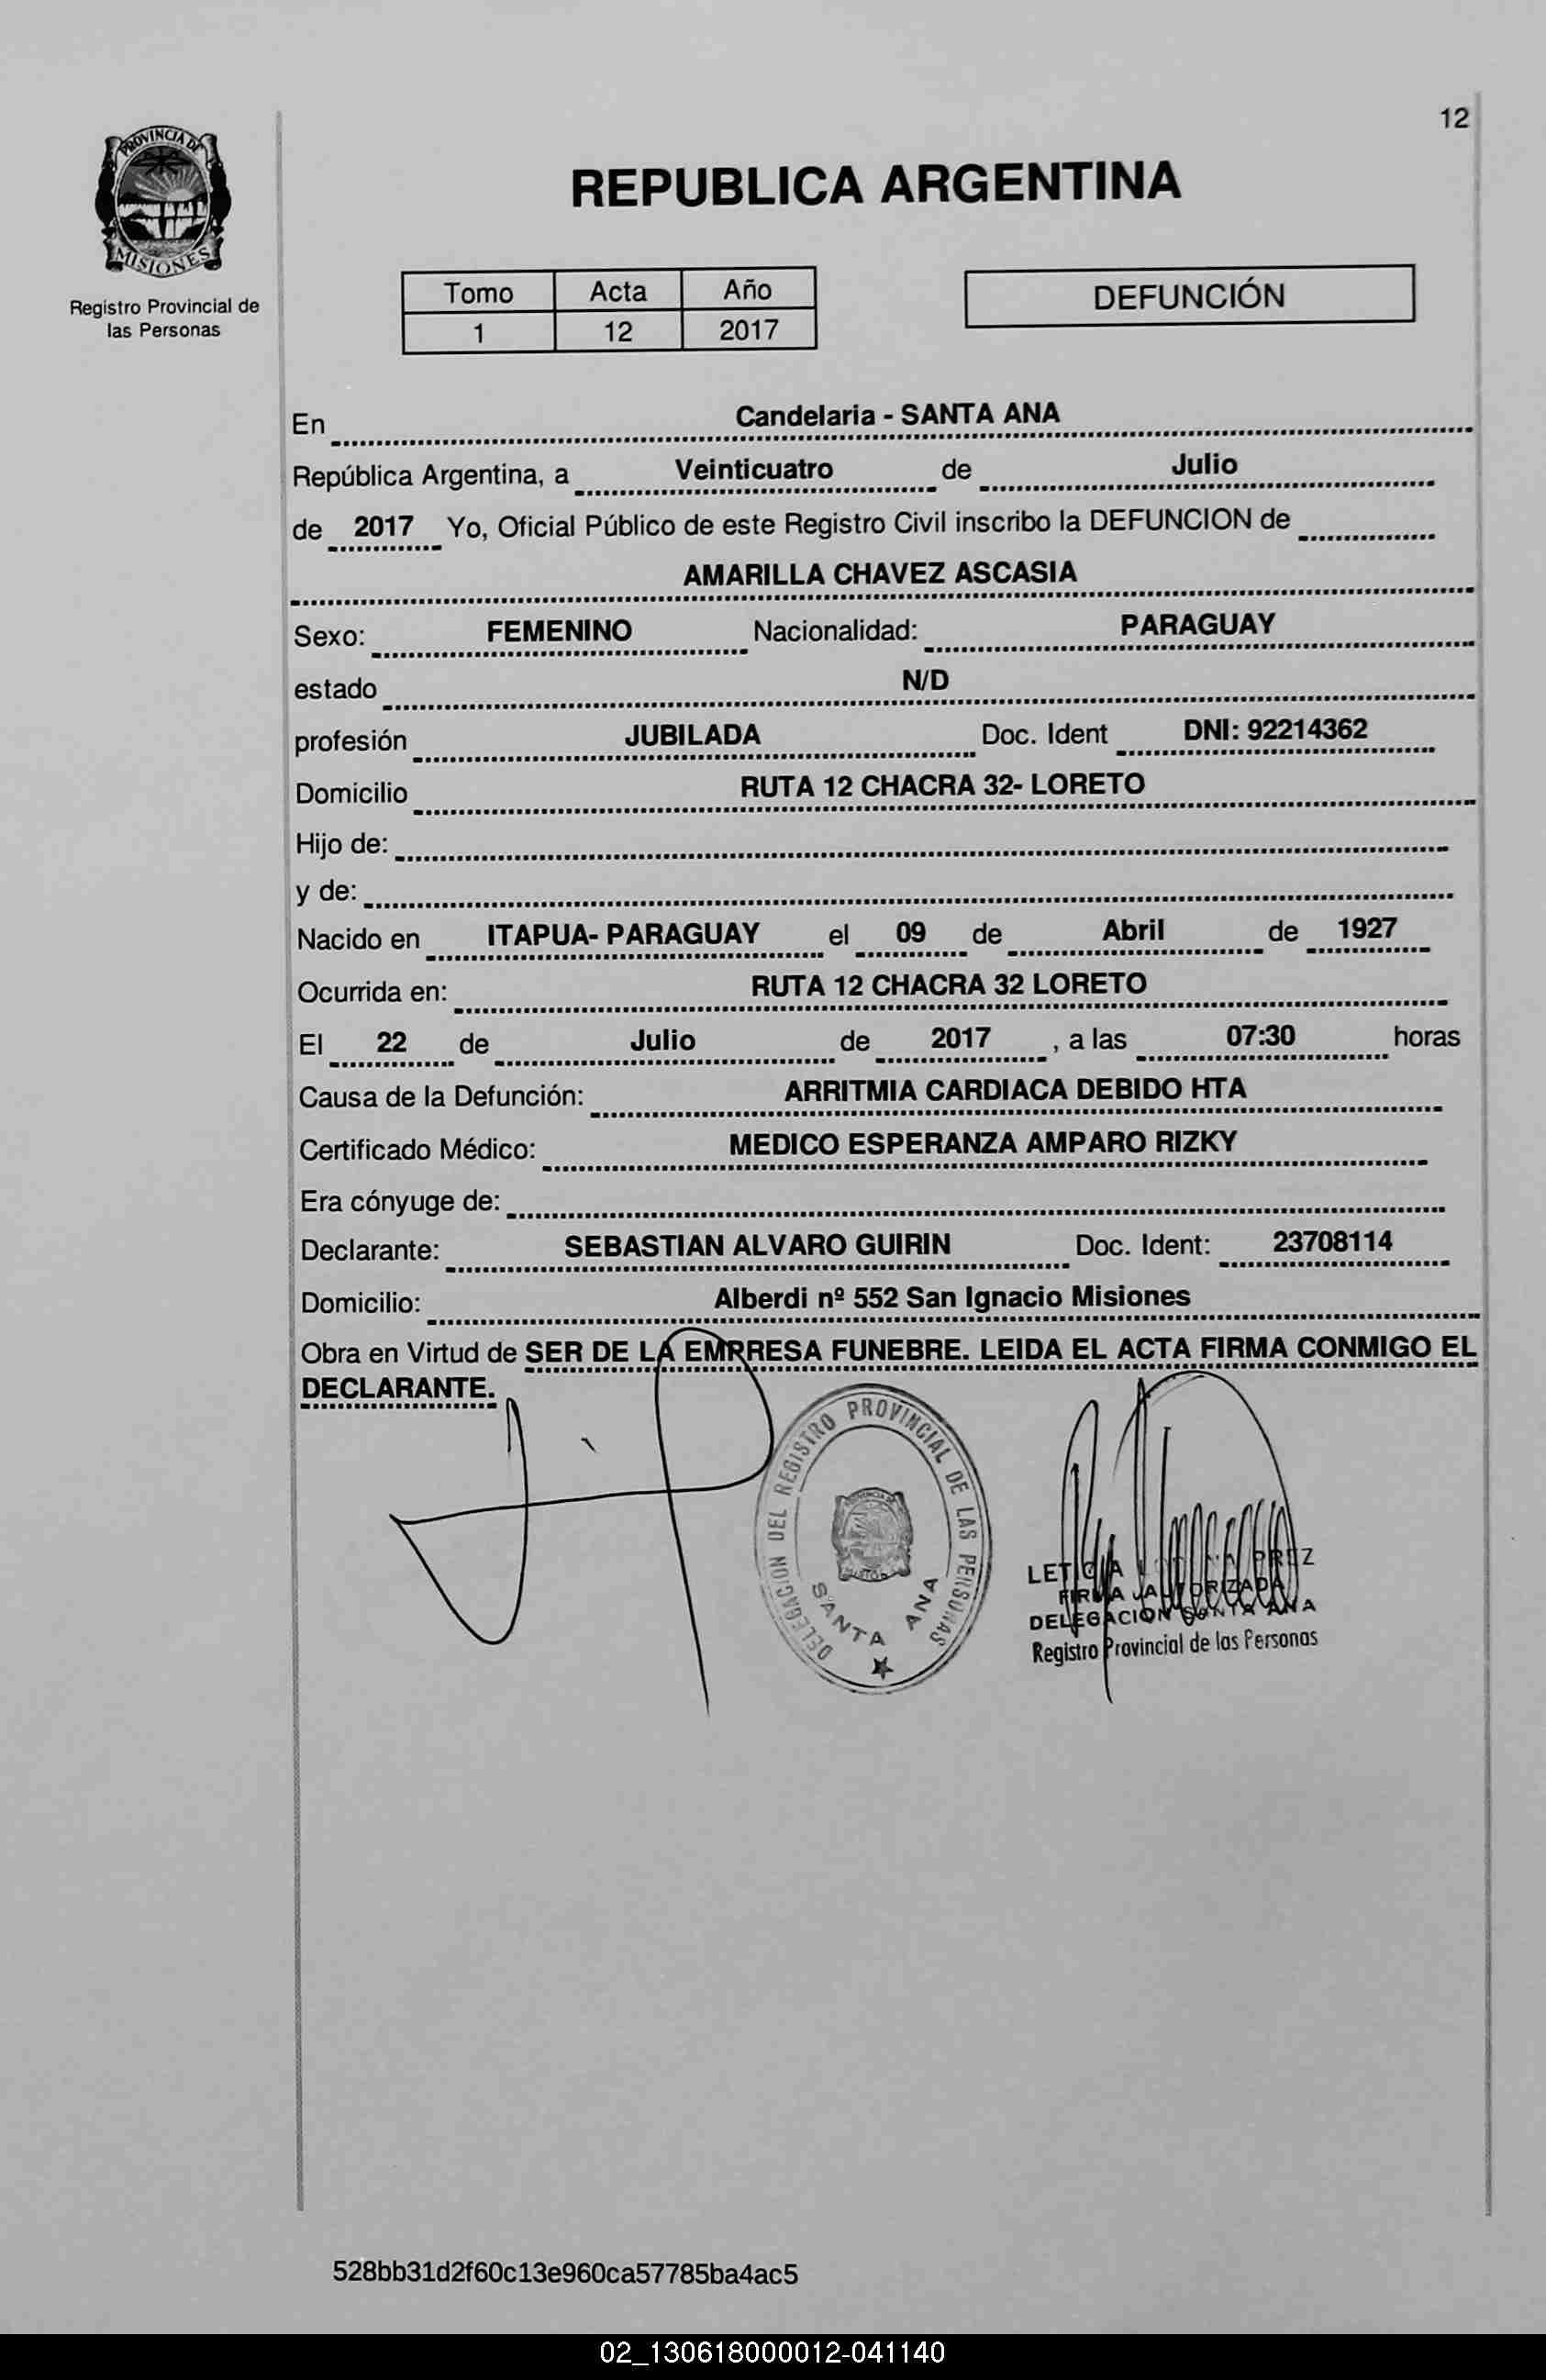 12
PROVINCIA DE
MISIONES
Registro Provincial de
las Personas
REPUBLICA ARGENTINA
Tomo Acta Año
1 12 2017
DEFUNCIÓN
En Candelaria - SANTA ANA
República Argentina, a Veinticuatro de Julio
de 2017 Yo, Oficial Público de este Registro Civil inscribo la DEFUNCION de
AMARILLA CHAVEZ ASCASIA
Sexo: FEMENINO Nacionalidad: PARAGUAY
estado N/D
profesión JUBILADA Doc. Ident DNI: 92214362
Domicilio RUTA 12 CHACRA 32- LORETO
Hijo de:
y de:
Nacido en ITAPUA- PARAGUAY el 09 de Abril de 1927
Ocurrida en: RUTA 12 CHACRA 32 LORETO
El 22 de Julio de 2017 , a las 07:30 horas
Causa de la Defunción: ARRITMIA CARDIACA DEBIDO HTA
Certificado Médico: MEDICO ESPERANZA AMPARO RIZKY
Era cónyuge de:
Declarante: SEBASTIAN ALVARO GUIRIN Doc. Ident: 23708114
Domicilio: Alberdi nº 552 San Ignacio Misiones
Obra en Virtud de SER DE LA EMPRESA FUNEBRE. LEIDA EL ACTA FIRMA CONMIGO EL
DECLARANTE.
DELEGACION DEL REGISTRO PROVINCIAL DE LAS PERSONAS
SANTA ANA
LETICIA
FIRMA AUTORIZADA
DELEGACION SANTA ANA
Registro Provincial de las Personas
528bb31d2f60c13e960ca57785ba4ac5
02_130618000012-041140